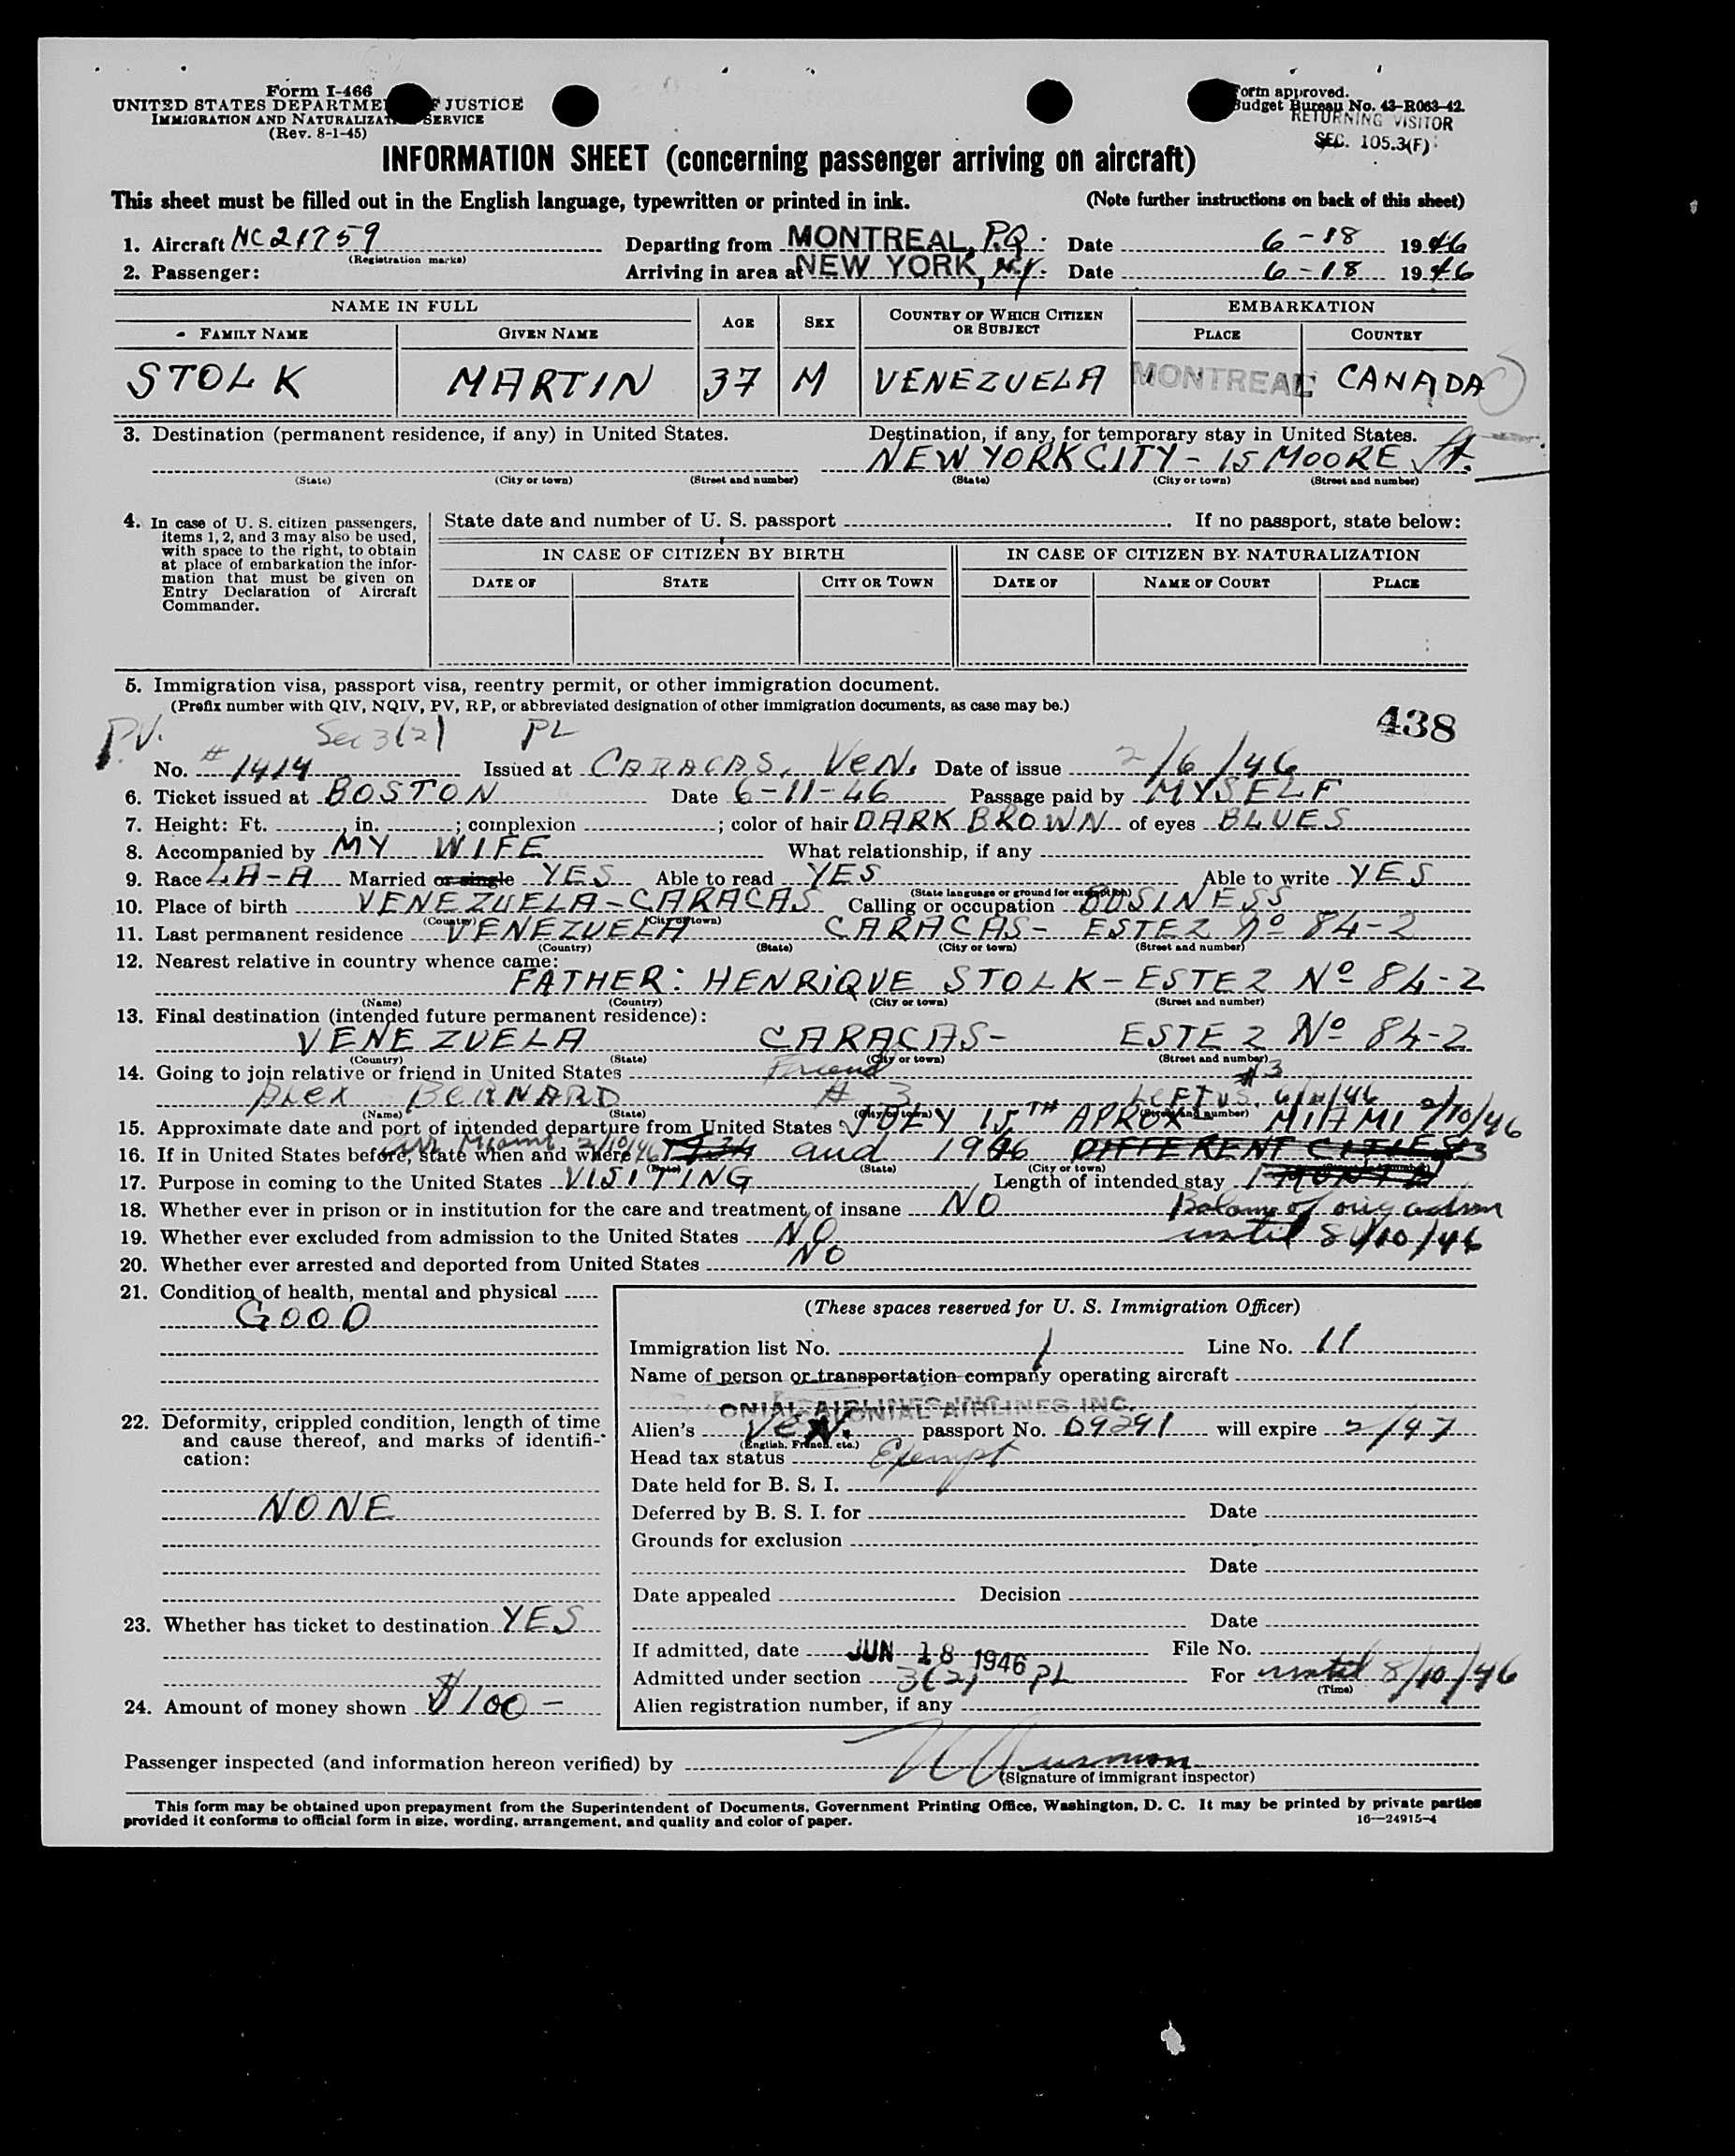 Form I-466
UNITED STATES DEPARTMENT OF JUSTICE
IMMIGRATION AND NATURALIZATION SERVICE
(Rev. 8-1-45)
Form approved.
Budget Bureau No. 43-R063-42.
RETURNING VISITOR
SEC. 105.3(F)
INFORMATION SHEET (concerning passenger arriving on aircraft)
This sheet must be filled out in the English language, typewritten or printed in ink. (Note further instructions on back of this sheet)
1. Aircraft NC21759 Departing from MONTREAL, P.Q. Date 6-18 1946
(Registration marks)
2. Passenger: Arriving in area at NEW YORK, N.Y. Date 6-18 1946
NAME IN FULL AGE SEX COUNTRY OF WHICH CITIZEN OR SUBJECT EMBARKATION
FAMILY NAME GIVEN NAME PLACE COUNTRY
STOLK MARTIN 37 M VENEZUELA MONTREAL CANADA
3. Destination (permanent residence, if any) in United States. Destination, if any, for temporary stay in United States.
NEW YORK CITY - 15 MOORE St.
(State) (City or town) (Street and number) (State) (City or town) (Street and number)
4. In case of U. S. citizen passengers, items 1, 2, and 3 may also be used, with space to the right, to obtain at place of embarkation the information that must be given on Entry Declaration of Aircraft Commander.
State date and number of U. S. passport If no passport, state below:
IN CASE OF CITIZEN BY BIRTH IN CASE OF CITIZEN BY NATURALIZATION
DATE OF STATE CITY OR TOWN DATE OF NAME OF COURT PLACE
5. Immigration visa, passport visa, reentry permit, or other immigration document.
(Prefix number with QIV, NQIV, PV, RP, or abbreviated designation of other immigration documents, as case may be.)
438
PV. Sec 3(2) PL
No. #1414 Issued at CARACAS, VEN. Date of issue 2/6/46
6. Ticket issued at BOSTON Date 6-11-46 Passage paid by MYSELF
7. Height: Ft. in. ; complexion ; color of hair DARK BROWN of eyes BLUES
8. Accompanied by MY WIFE What relationship, if any
9. Race LA-A Married or single YES Able to read YES Able to write YES
(State language or ground for exemption)
10. Place of birth VENEZUELA-CARACAS Calling or occupation BUSINESS
(Country) (City or town)
11. Last permanent residence VENEZUELA CARACAS- ESTE 2 Nº 84-2
(Country) (State) (City or town) (Street and number)
12. Nearest relative in country whence came:
FATHER: HENRIQUE STOLK-ESTE 2 Nº 84-2
(Name) (Country) (City or town) (Street and number)
13. Final destination (intended future permanent residence):
VENEZUELA CARACAS- ESTE 2 Nº 84-2
(Country) (State) (City or town) (Street and number)
14. Going to join relative or friend in United States Friend #3
Alex BERNARD # 3 LEFT US.
(Name) (State) (City or town) (Street and number)
15. Approximate date and port of intended departure from United States JULY 15TH APROX MIAMI 2/10/46
16. If in United States before, state when and where arr Miami 2/10/46 and 1946 DIFFERENT CITIES
(Date) (State) (City or town) (Street and number)
17. Purpose in coming to the United States VISITING Length of intended stay 1 MONTH
18. Whether ever in prison or in institution for the care and treatment of insane NO Balance of orig admn
19. Whether ever excluded from admission to the United States NO until 8/10/46
20. Whether ever arrested and deported from United States NO
21. Condition of health, mental and physical
GOOD
22. Deformity, crippled condition, length of time and cause thereof, and marks of identification:
NONE
23. Whether has ticket to destination YES
24. Amount of money shown $100-
(These spaces reserved for U. S. Immigration Officer)
Immigration list No. 1 Line No. 11
Name of person or transportation company operating aircraft
ONIAL AIRLINES INC.
Alien's VEN. passport No. D9291 will expire 2/47
(English, French, etc.)
Head tax status Exempt
Date held for B. S. I.
Deferred by B. S. I. for Date
Grounds for exclusion
Date
Date appealed Decision
Date
If admitted, date JUN 18 1946 File No.
Admitted under section 3(2) PL For until 8/10/46
(Time)
Alien registration number, if any
Passenger inspected (and information hereon verified) by
(Signature of immigrant inspector)
This form may be obtained upon prepayment from the Superintendent of Documents, Government Printing Office, Washington, D. C. It may be printed by private parties
provided it conforms to official form in size, wording, arrangement, and quality and color of paper. 16—24915-4